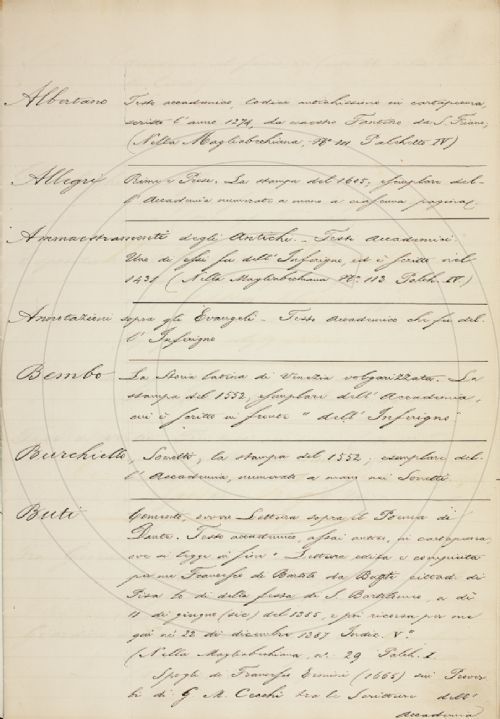 Albertano Testo accademico, Codice antichissimo in cartapecora,
scritto l'anno 1274, da maestro Fantino da S. Friano,
(Nella Magliabechiana, N.º 111 Palchetto IV)
Allegri Rime e Prose. La stampa del 1605, esemplare del-
l'Accademia numerato a mano a ciascuna pagina.
Ammaestramenti degli Antichi. - Testi Accademici
Uno di essi fu dell'Inferigno, ed è scritto nel
1431 (Nella Magliabechiana N.º 113 Palch. IV.)
Annotazioni sopra gli Evangeli - Testo Accademico che fu del-
l'Inferigno
Bembo La Storia latina di Venezia volgarizzata. La
stampa del 1552, esemplare dell'Accademia,
ove è scritto in fronte "dell'Inferigno"
Burchiello, Sonetti, la stampa del 1552; esemplare del-
l'Accademia, numerato a mano nei Sonetti.
Buti Comento, ovvero Lettura sopra il Poema di
Dante. Testo accademico, assai antico, in cartapecora
ove si legge in fine "Lettura edita e compiuta
per me Francesco di Bartolo da Buti cittad. di
Pisa lo dì della festa di S. Bartolomeo, a dì
11 di giugno (sic) del 1355, e poi ricorsa per me
nei 22 di dicembre 1367 Indic. V.ª
(Nella Magliabechiana, n.º 29 Palch. I.
Spoglio di Francesco (1665) sui Prover
bi di G. M. Cecchi tra le Scritture dell'
Accademia